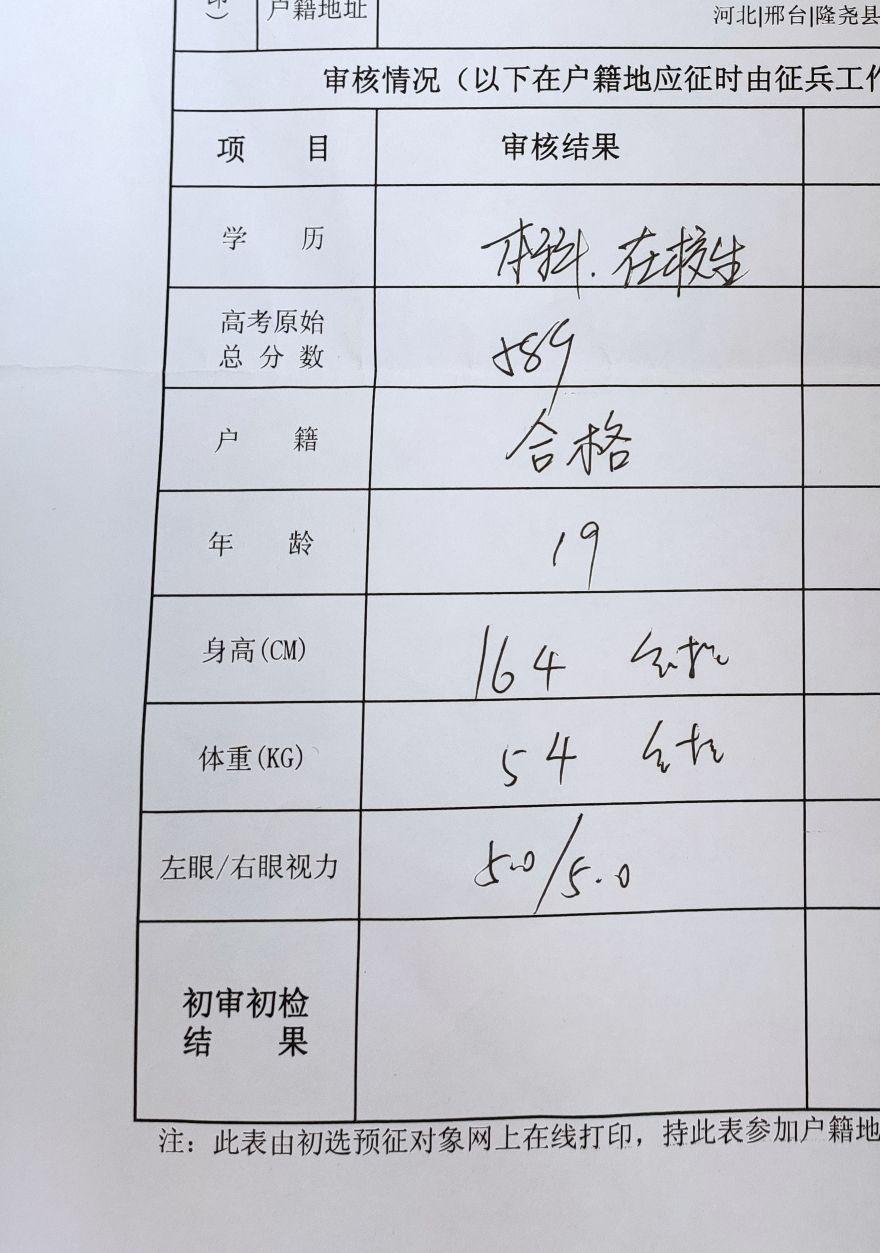 户籍地址
河北|邢台|隆尧县
审核情况（以下在户籍地应征时由征兵工作
项 目 审核结果
学 历 本科.在校生
高考原始
总 分 数 589
户 籍 合格
年 龄 19
身高(CM) 164 合格
体重(KG) 54 合格
左眼/右眼视力 5.0/5.0
初审初检
结 果
注：此表由初选预征对象网上在线打印，持此表参加户籍地